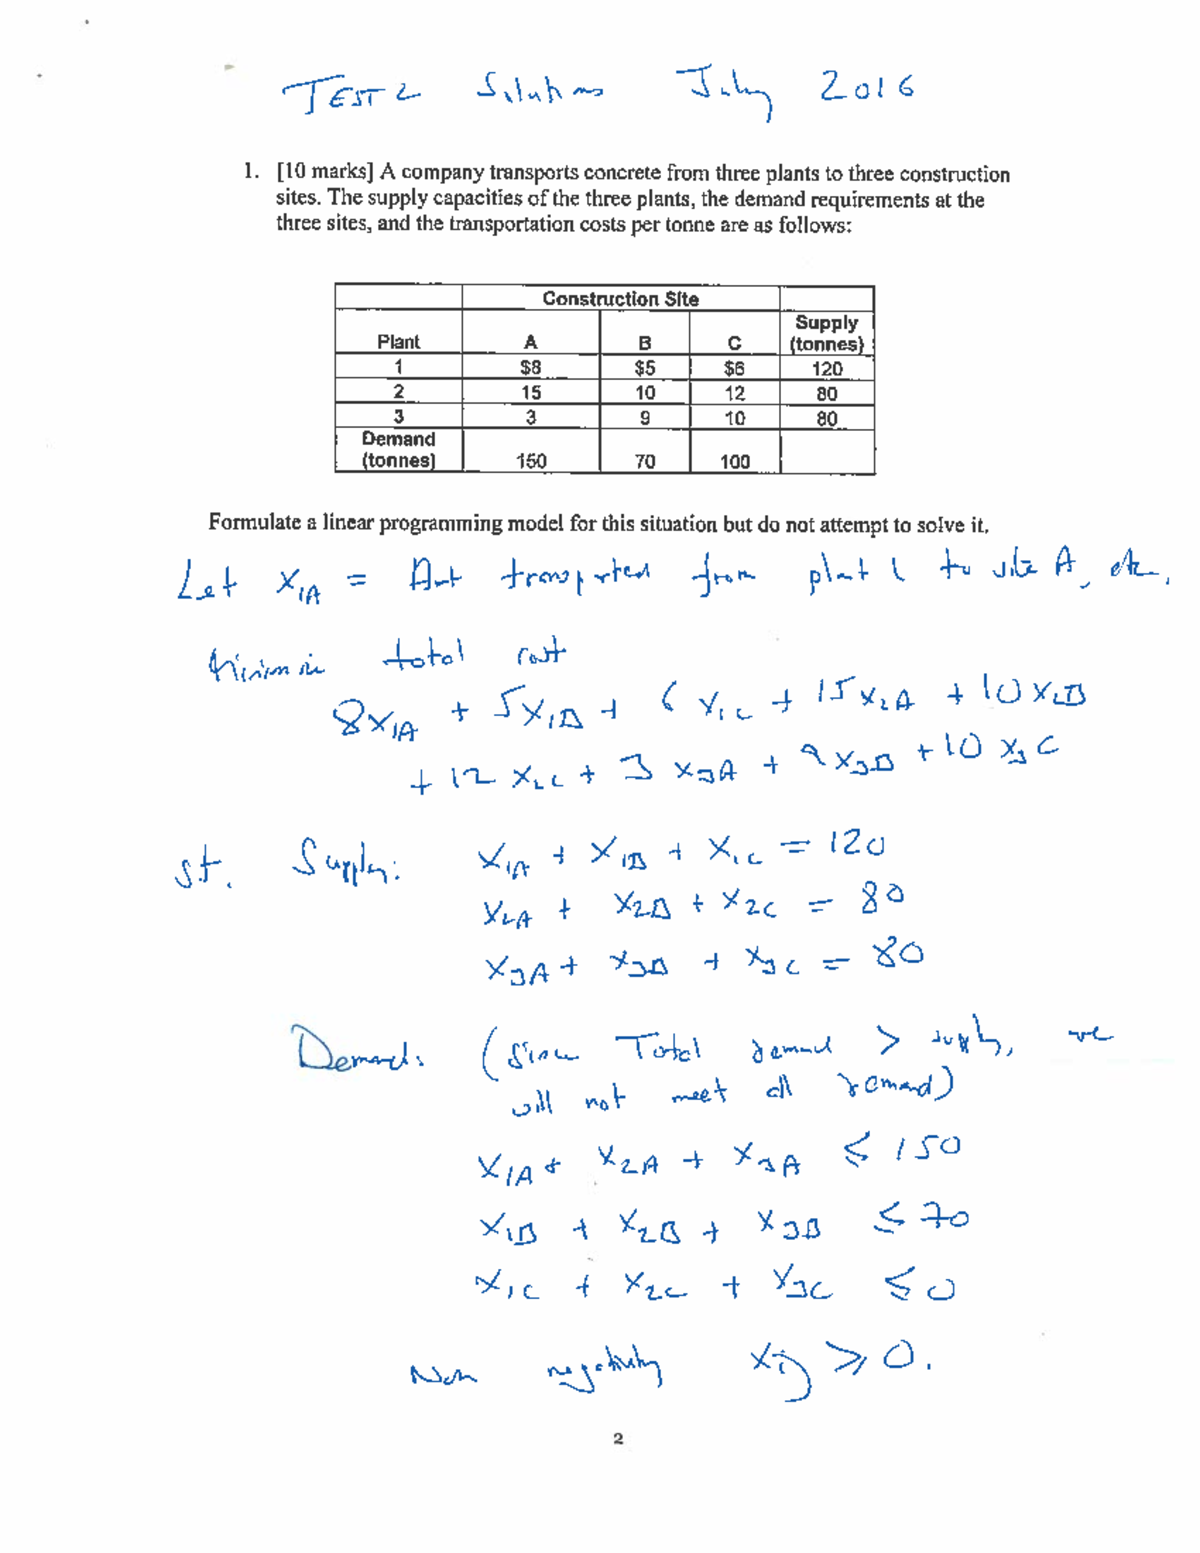 TEST 2 Solutions July 2016
1. [10 marks] A company transports concrete from three plants to three construction
sites. The supply capacities of the three plants, the demand requirements at the
three sites, and the transportation costs per tonne are as follows:
Construction Site
Plant A B C Supply (tonnes)
1 $8 $5 $6 120
2 15 10 12 80
3 3 9 10 80
Demand (tonnes) 150 70 100
Formulate a linear programming model for this situation but do not attempt to solve it.
Let x1A = Amt transported from plant 1 to site A, etc.
Minimize total cost
8x1A + 5x1B + 6x1C + 15x2A + 10x2B
+ 12x2C + 3x3A + 9x3B + 10x3C
st. Supply: x1A + x1B + x1C = 120
x2A + x2B + x2C = 80
x3A + x3B + x3C = 80
Demand: (Since Total demand > supply, we
will not meet all demand)
x1A + x2A + x3A ≤ 150
x1B + x2B + x3B ≤ 70
x1C + x2C + x3C ≤ 0
Non negativity xij ≥ 0.
2